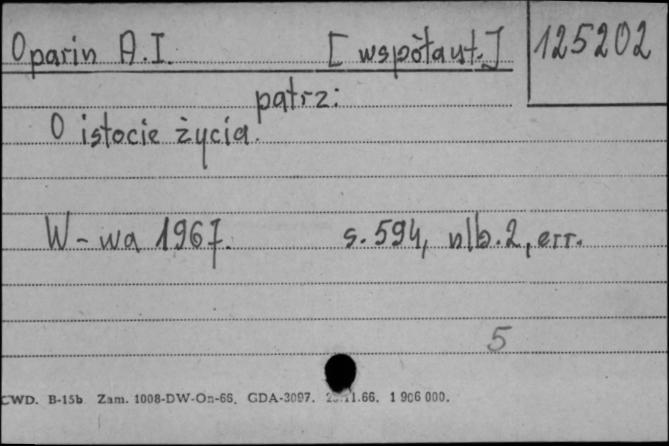 Oparin A.I. [współaut.] 125202
patrz:
O istocie życia.
W-wa 1967. s. 594, nlb. 2, err.
5
CWD. B-15b. Zam. 1008-DW-On-66. GDA-3097. 11.66. 1 906 000.